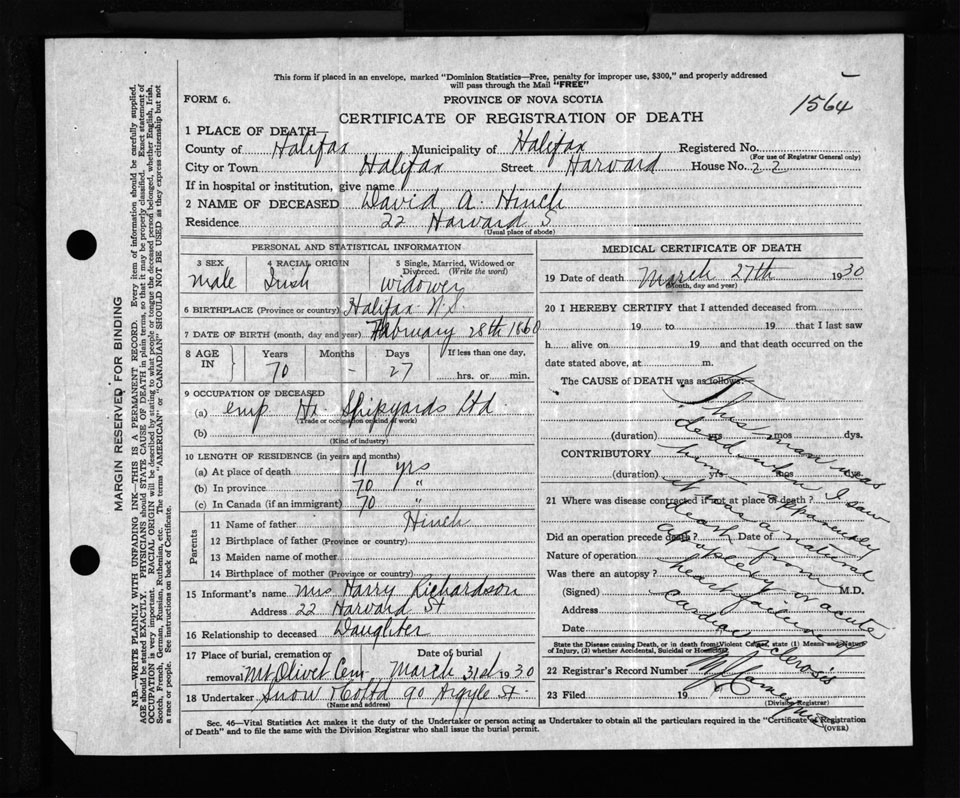 This form if placed in an envelope, marked "Dominion Statistics—Free, penalty for improper use, $300," and properly addressed
will pass through the Mail "FREE"
1564
FORM 6.
PROVINCE OF NOVA SCOTIA
CERTIFICATE OF REGISTRATION OF DEATH
1 PLACE OF DEATH—
County of Halifax Municipality of Halifax Registered No.
(For use of Registrar General only)
City or Town Halifax Street Harvard House No. 22
If in hospital or institution, give name
2 NAME OF DECEASED David A. Hinch
Residence 22 Harvard S
(Usual place of abode)
PERSONAL AND STATISTICAL INFORMATION
3 SEX 4 RACIAL ORIGIN 5 Single, Married, Widowed or Divorced. (Write the word)
male Irish widower
6 BIRTHPLACE (Province or country) Halifax N.S.
7 DATE OF BIRTH (month, day and year) February 28th 1860
8 AGE IN Years Months Days If less than one day,
70 - 27 hrs. or min.
9 OCCUPATION OF DECEASED
(a) emp Hx Shipyards Ltd.
(Trade or occupation or kind of work)
(b)
(Kind of industry)
10 LENGTH OF RESIDENCE (in years and months)
(a) At place of death 11 yrs
(b) In province 70 "
(c) In Canada (if an immigrant) 70 "
Parents
11 Name of father Hinch
12 Birthplace of father (Province or country)
13 Maiden name of mother
14 Birthplace of mother (Province or country)
15 Informant's name Mrs Harry Richardson
Address 22 Harvard St
16 Relationship to deceased Daughter
17 Place of burial, cremation or removal Date of burial
Mt Olivet Cem March 31st 1930
18 Undertaker Snow & Co Ltd 90 Argyle St.
(Name and address)
MEDICAL CERTIFICATE OF DEATH
19 Date of death March 27th 1930
(Month, day and year)
20 I HEREBY CERTIFY that I attended deceased from
19 to 19 that I last saw
h alive on 19 and that death occurred on the
date stated above, at m.
The CAUSE of DEATH was as follows:—
(duration) yrs mos dys.
CONTRIBUTORY
(duration) yrs mos dys.
21 Where was disease contracted if not at place of death?
Did an operation precede death? Date of
Nature of operation
Was there an autopsy?
(Signed) M.D.
Address
Date
This man was
dead when I saw
him apparently
it was a natural
death from
apoplexy or acute
heart failure
cardiac sclerosis
State the Disease causing Death, or in death from Violent Causes, state (1) Means and Nature
of Injury, (2) whether Accidental, Suicidal or Homicidal
22 Registrar's Record Number
23 Filed 19
(Division Registrar)
Sec. 46—Vital Statistics Act makes it the duty of the Undertaker or person acting as Undertaker to obtain all the particulars required in the "Certificate of Registration
of Death" and to file the same with the Division Registrar who shall issue the burial permit.
(OVER)
MARGIN RESERVED FOR BINDING
N.B.—WRITE PLAINLY WITH UNFADING INK—THIS IS A PERMANENT RECORD. Every item of information should be carefully supplied.
AGE should be stated EXACTLY. PHYSICIANS should STATE CAUSE OF DEATH in plain terms, so that it may be properly classified. Exact statement of
OCCUPATION is very important. RACIAL ORIGIN will be described by stating to what people or tongue the deceased person belonged, whether English, Irish,
Scotch, French, German, Russian, Ruthenian, etc. The terms "AMERICAN" or "CANADIAN" SHOULD NOT BE USED as they express citizenship but not
a race or people. See instructions on back of Certificate.